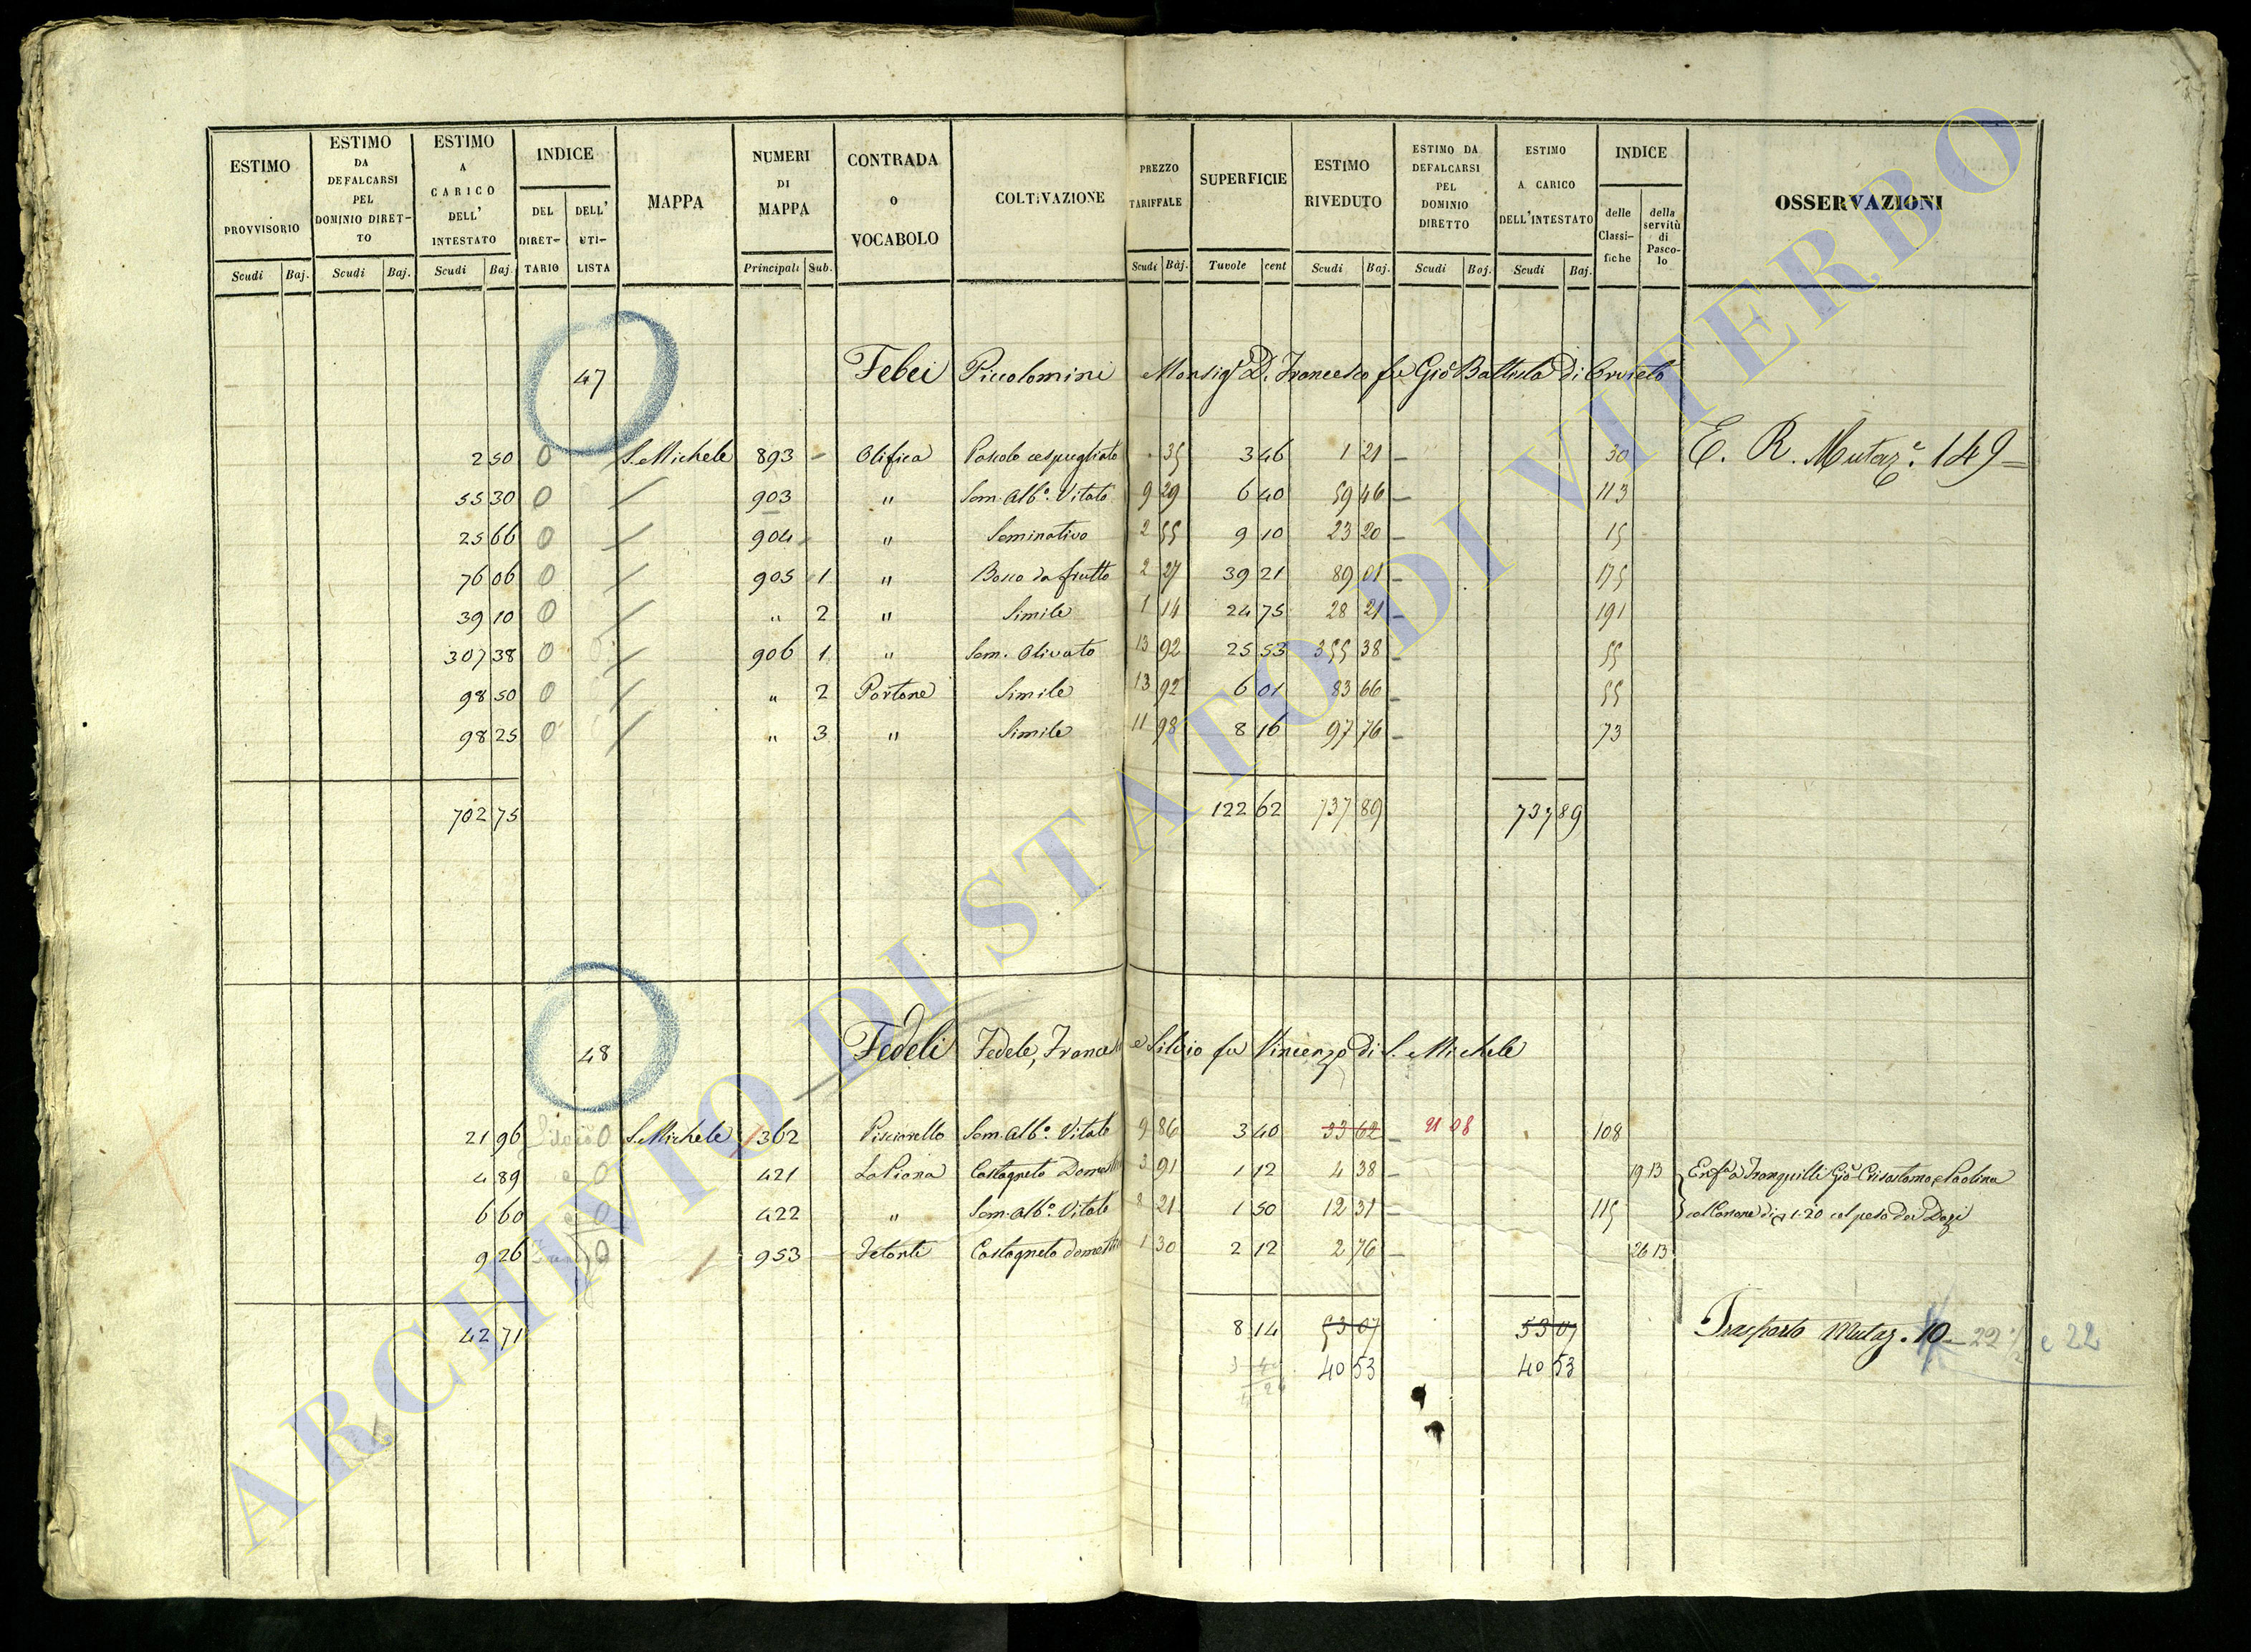 ESTIMO PROVVISORIO Scudi Baj.
ESTIMO DA DEFALCARSI PEL DOMINIO DIRETTO Scudi Baj.
ESTIMO A CARICO DELL' INTESTATO Scudi Baj
INDICE DEL DIRETTARIO DELL' UTILISTA
MAPPA
NUMERI DI MAPPA Principali Sub.
CONTRADA O VOCABOLO
COLTIVAZIONE
PREZZO TARIFFALE Scudi Baj.
SUPERFICIE Tavole cent
ESTIMO RIVEDUTO Scudi Baj.
ESTIMO DA DEFALCARSI PEL DOMINIO DIRETTO Scudi Baj.
ESTIMO A CARICO DELL'INTESTATO Scudi Baj.
INDICE delle Classifiche della servitù di Pascolo
OSSERVAZIONI
47 Febei Piccolomini Monsigr D. Francesco fu Gio Battista di Orvieto
2 50 0 S. Michele 893 Olifica Pascolo cespugliato 35 3 46 1 21 30 E. R. Mutaze. 149
55 30 0 903 " Sem. Albo. Vitato 9 29 6 40 59 46 113
25 66 0 904 " Seminativo 2 55 9 10 23 20 15
76 06 0 905 1 " Bosco da frutto 2 27 39 21 89 01 175
39 10 0 " 2 " Simile 1 14 24 75 28 21 191
307 38 0 906 1 " Sem. Olivato 13 92 25 53 355 38 55
98 50 0 " 2 Portone Simile 13 92 6 01 83 66 55
98 25 0 " 3 " Simile 11 98 8 16 97 76 73
702 75 122 62 737 89 737 89
48 Fedeli Fedele, Francesco e Silvio fu Vincenzo di S. Michele
21 96 0 S. Michele 362 Pisciarello Sem. Albo. Vitato 9 86 3 40 33 62 21 08 108
4 89 0 421 La Piana Castagneto Domestico 3 91 1 12 4 38 19 13 Enfa a Tranquilli Gio Crisostomo e Paolina
6 60 0 422 " Sem. Albo. Vitato 8 21 1 50 12 31 115 col Canone di 1.20 col peso dei Dazi
9 26 0 953 Castagneto domestico 1 30 2 12 2 76 26 13
42 71 8 14 53 07 53 07 Trasporto Mutaz. 10 22 1/2 e 22
40 53 40 53
ARCHIVIO DI STATO DI VITERBO